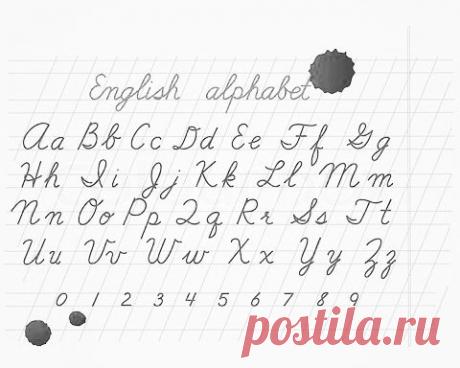 English alphabet
Aa Bb Cc Dd Ee Ff Gg
Hh Ii Jj Kk Ll Mm
Nn Oo Pp Qq Rr Ss Tt
Uu Vv Ww Xx Yy Zz
0 1 2 3 4 5 6 7 8 9
postila.ru